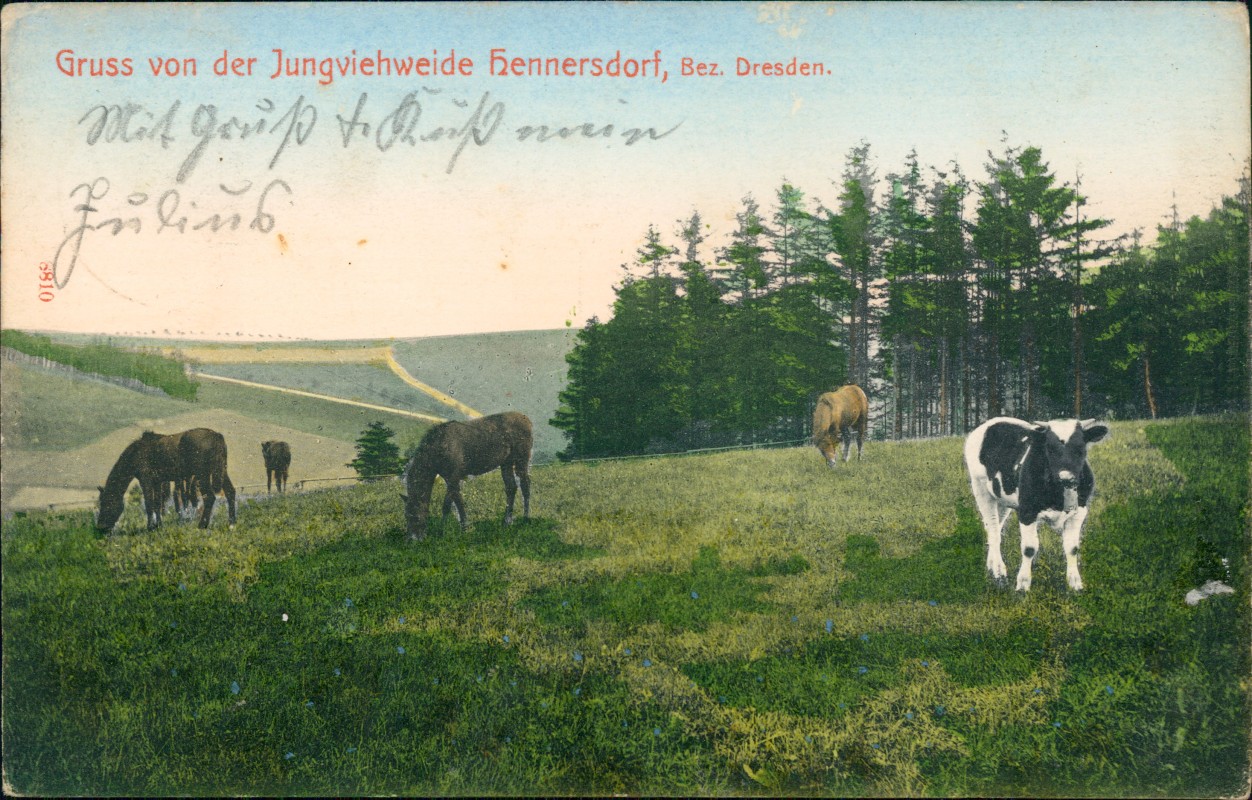 Gruss von der Jungviehweide Hennersdorf, Bez. Dresden.
Mit Gruß & Kuß mein
Julius
8810